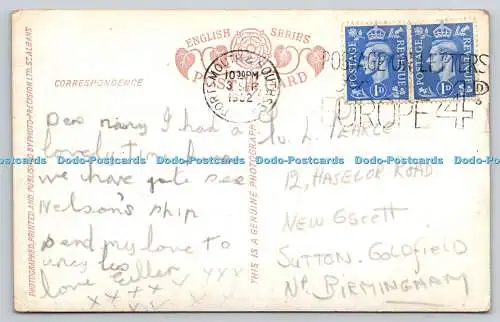 ENGLISH SERIES
POST CARD
CORRESPONDENCE
PHOTOGRAPHED, PRINTED AND PUBLISHED BY PHOTO-PRECISION LTD. ST. ALBANS
THIS IS A GENUINE PHOTOGRAPH
PORTSMOUTH & SOUTHSEA
10 30 PM
3 SEP
1952
POSTAGE ON LETTERS
EUROPE 4D
POSTAGE REVENUE
1D
POSTAGE REVENUE
1D
Dear nany I had a
lovely time here
we have gote see
Nelson's ship
send my love to
uncy les
love Eillen
xxxx
L. PEARCE
12, HASELOR ROAD
NEW OSCOTT
SUTTON. GOLDFIELD
Nr BIRMINGHAM
Dodo-Postcards Dodo-Postcards Dodo-Postcards